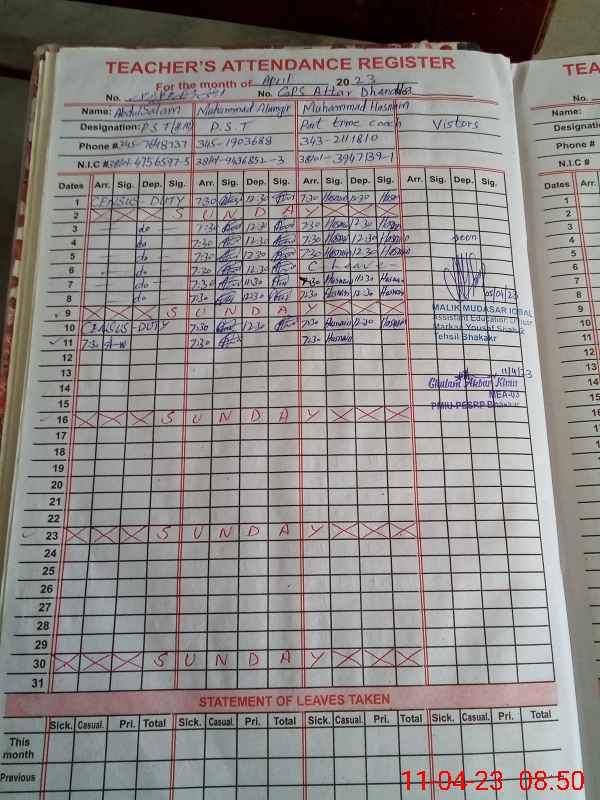 TEACHER'S ATTENDANCE REGISTER
For the month of April 2023
No. No. GPS Attar Dhandla
Name: AbdulSalam Muhammad Alamgir Muhammad Hasnain
Designation: P.S.T P.S.T Part time coach Vistors
Phone # 345-7848737 345-1903688 343-2111810
N.I.C # 38101-4756597-5 38101-9436852-3 38101-3947139-1
Dates Arr. Sig. Dep. Sig. Arr. Sig. Dep. Sig. Arr. Sig. Dep. Sig. Arr. Sig. Dep. Sig.
1 CENSUS-DUTY 7:30 12:30 7:30 Hasnain 12:30 Hasnain
2 S U N D A Y
3 — do — 7:30 12:30 7:30 Hasnain 12:30 Hasnain
4 — do — 7:30 12:30 7:30 Hasnain 12:30 Hasnain seen
5 — do — 7:30 12:30 7:30 Hasnain 12:30 Hasnain
6 — do — 7:30 12:30 C Leave
7 — do — 7:30 11:30 7:30 Hasnain 11:30 Hasnain
8 — do — 7:30 12:30 7:30 Hasnain 12:30 Hasnain 05/04/23
MALIK MUDASAR IQBAL
9 S U N D A Y Assistant Education Officer
10 CENSUS-DUTY 7:30 12:30 7:30 Hasnain 12:30 Hasnain Markaz Yousaf Shah 2
11 7:30 7:30 7:30 Hasnain Tehsil Bhakkar
12
13 11/4/23
14 Ghulam Akbar Khan
MEA-03
15 PMIU-PESRP Bhakkar
16 S U N D A Y
17
18
19
20
21
22
23 S U N D A Y
24
25
26
27
28
29
30 S U N D A Y
31
STATEMENT OF LEAVES TAKEN
Sick. Casual. Pri. Total Sick. Casual. Pri. Total Sick. Casual. Pri. Total Sick. Casual. Pri. Total
This month
Previous
11-04-23 08:50
TEA
Name:
Designation:
Phone #
N.I.C #
Dates
1
2
3
4
5
6
7
8
9
10
11
12
13
14
15
16
17
18
19
20
21
22
23
24
25
26
27
28
29
30
31
This
month
Previous